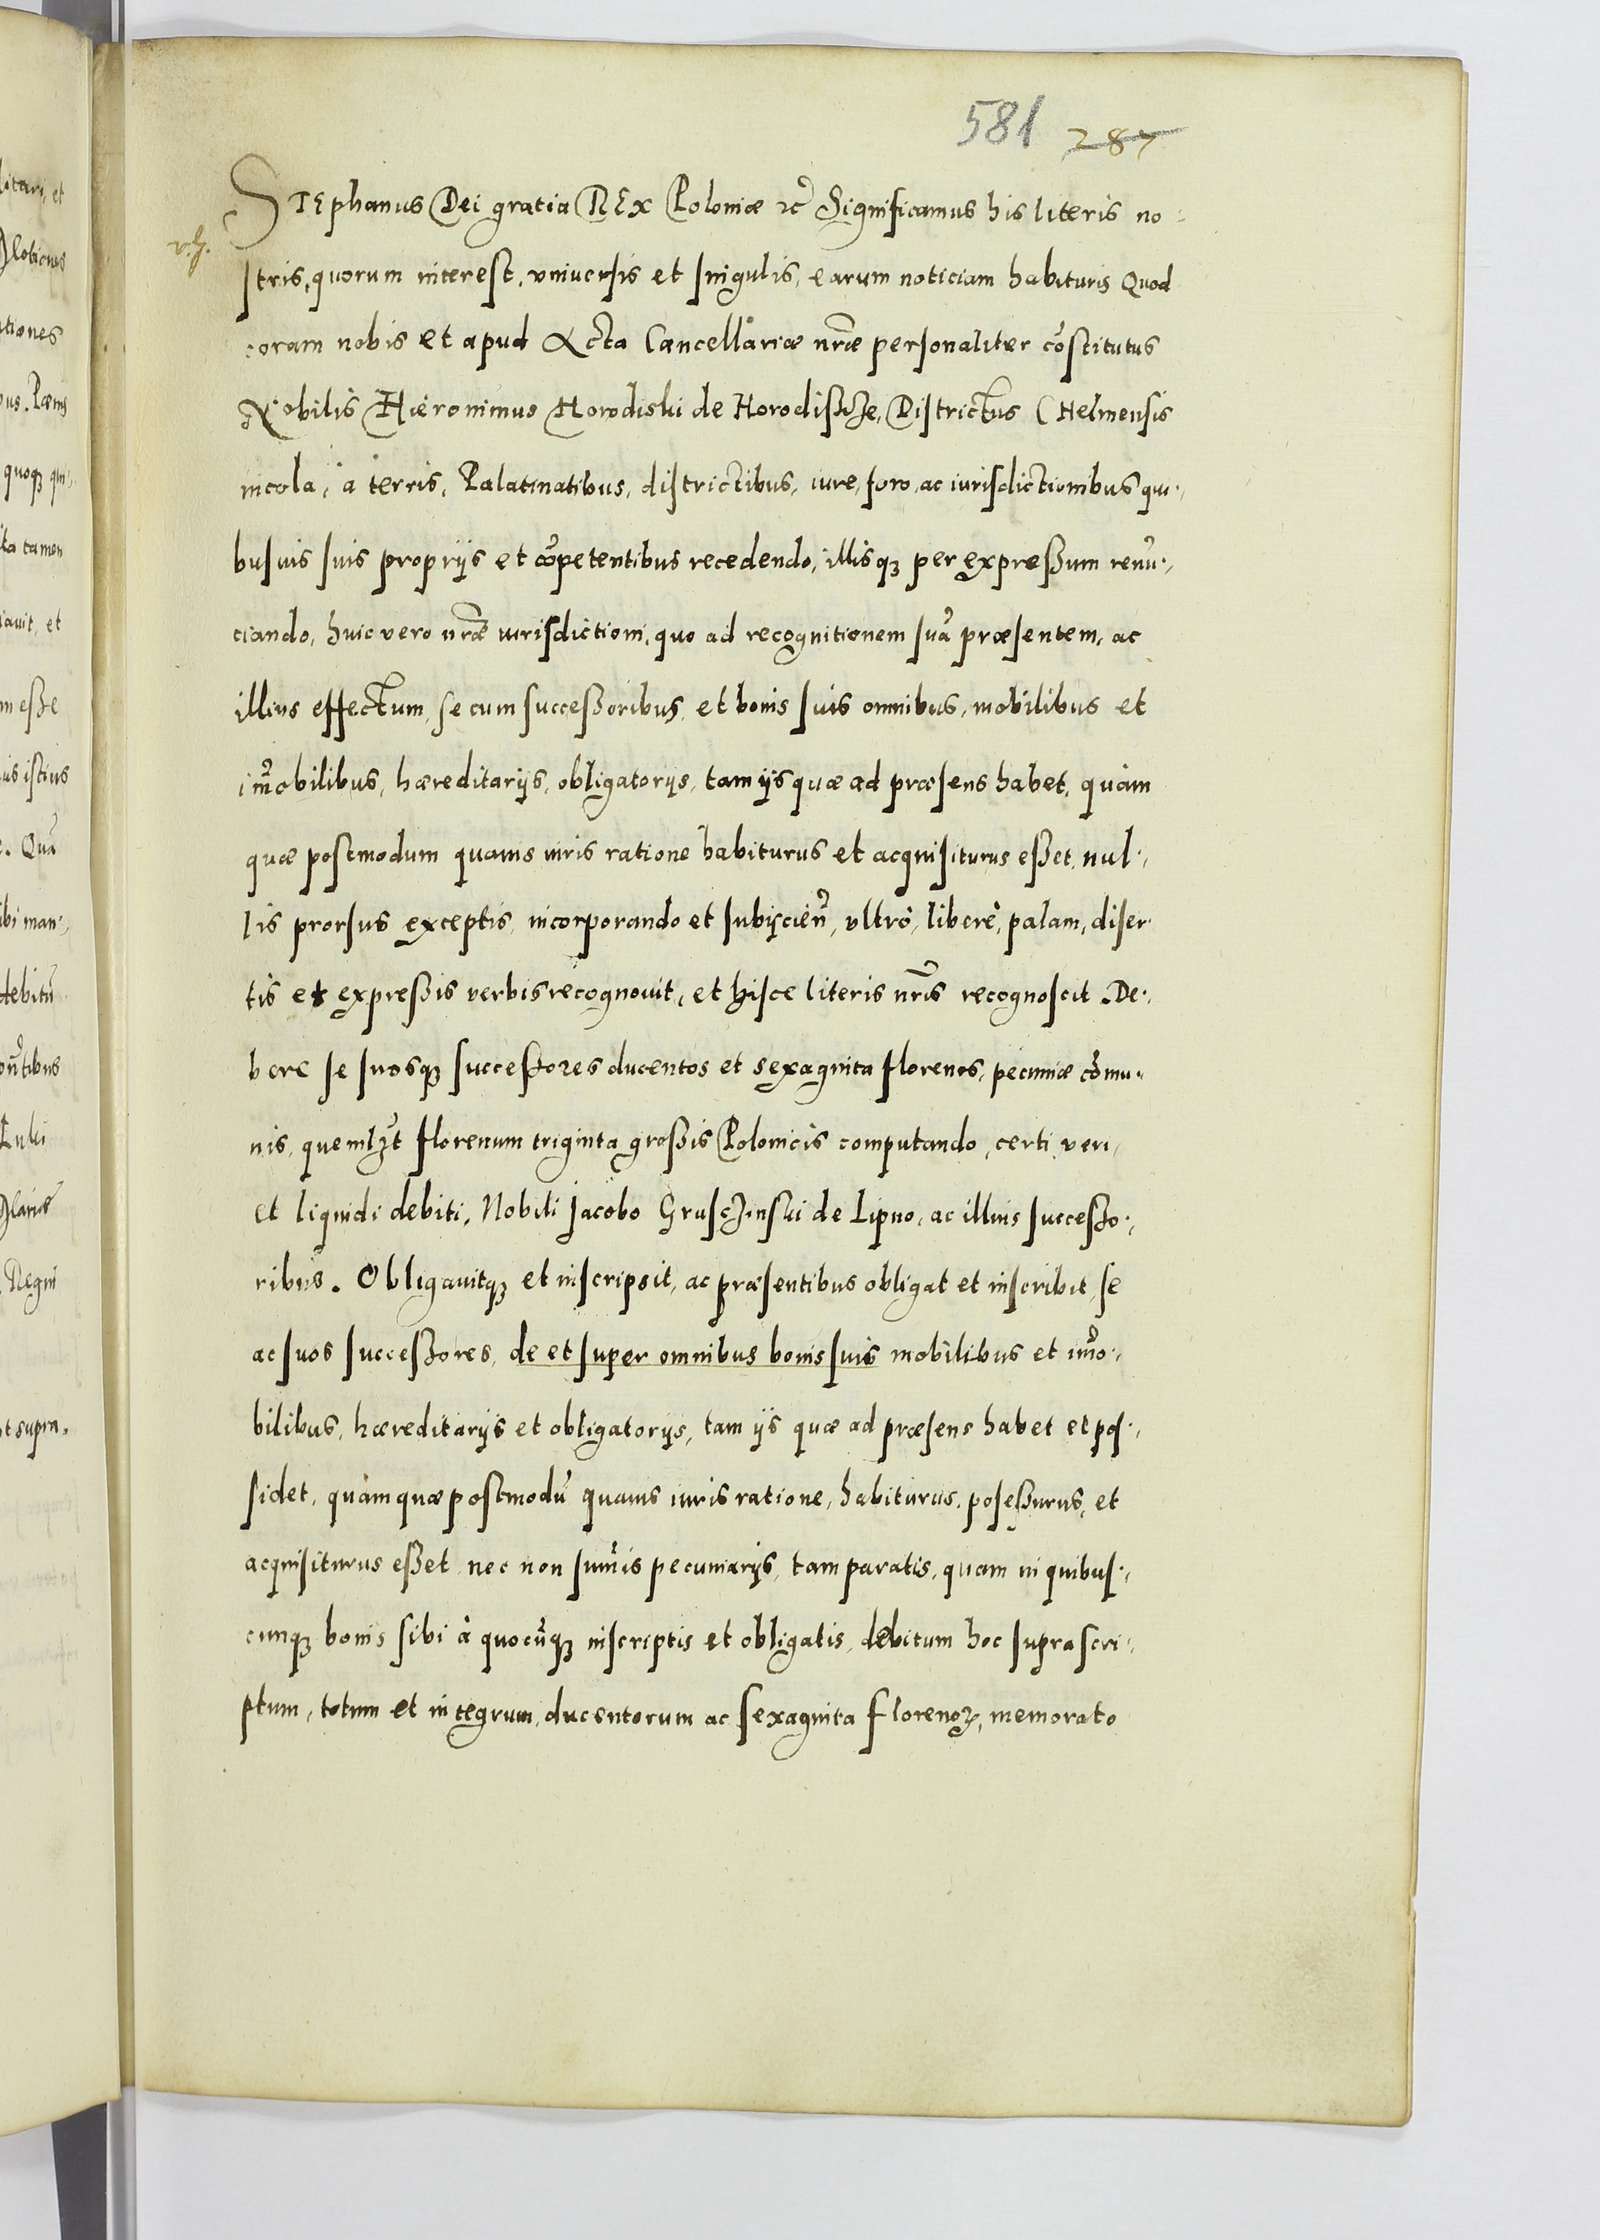 581 287
Stephanus Dei gratia Rex Poloniæ zc̃ Significamus his literis no-
v.h.
stris, quorum interest, vniuersis et singulis, earum noticiam habituris Quod
coram nobis et apud Acta Cancellariæ nr̃æ personaliter cõstitutus
Nobilis Hieronimus Horodiski de Horodiszcze, Districtus Chelmensis
incola, à terris, Palatinatibus, districtibus, iure, foro, ac iurisdictionibus qui-
busuis suis proprijs et cõpetentibus recedendo, illisqꝫ per expressum renũ-
ciando, huic vero nr̃æ iurisdictioni, quo ad recognitionem suã præsentem, ac
illius effectum, se cum successoribus, et bonis suis omnibus, mobilibus et
im̃obilibus, hæreditarijs, obligatorijs, tam ijs quæ ad præsens habet, quàm
quæ postmodum quauis iuris ratione habiturus et acquisiturus esset, nul-
lis prorsus exceptis, incorporando et subijcieñ, vltrò, liberè, palam, diser
tis et expressis verbis recognouit, et hisce literis nr̃is recognoscit. De-
bere se suosqꝫ successores ducentos et sexaginta florenos, pecuniæ cõmu-
nis, quemlꝫt florenum triginta grossis Polonicis computando, certi, veri,
et liquidi debiti, Nobili Jacobo Grusczinski de Lipno, ac illius successo-
ribus. Obligauitqꝫ et inscripsit, ac præsentibus obligat et inscribit, se
ac suos successores, de et super omnibus bonis suis mobilibus et im̃o-
bilibus, hæreditarijs et obligatorijs, tam ijs quæ ad præsens habet et pos-
sidet, quàm quæ postmodũ quauis iuris ratione, habiturus, posessurus, et
acquisiturus esset, nec non sum̃is pecuniarijs, tam paratis, quam in quibus-
cunqꝫ bonis sibi à quocũqꝫ inscriptis et obligatis, debitum hoc suprascri-
ptum, totum et integrum, ducentorum ac sexaginta Florenoꝝ, memorato